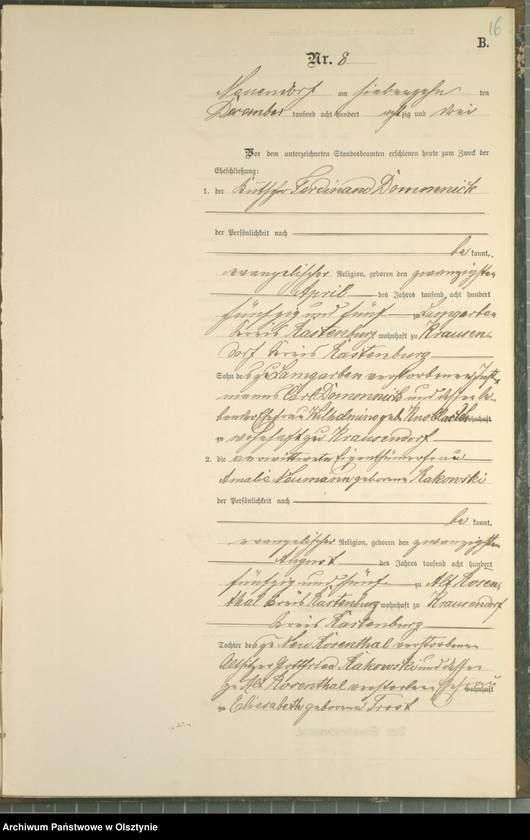 16
B.
Nr. 8
Neuendorf am siebenzehn ten
December tausend acht hundert achtzig und drei
Vor dem unterzeichneten Standesbeamten erschienen heute zum Zweck der
Eheschließung:
1. der Kutscher Ferdinand Dommnick
der Persönlichkeit nach
be kannt,
evangelischer Religion, geboren den zwanzigsten
April des Jahres tausend acht hundert
fünfzig und fünf zu Lamgarben
Kreis Rastenburg wohnhaft zu Krausen
dorf Kreis Rastenburg
Sohn des zu Lamgarben verstorbenen Inst
manns Carl Dommnick und dessen le
benden Ehefrau Wilhelmine geb. wohnhaft
zu wohnhaft zu Krausendorf
2. die verwittwete Eigenthümerfrau
Amalie Neumann geborene Kakowski
der Persönlichkeit nach
be kannt,
evangelischer Religion, geboren den zwanzigsten
August des Jahres tausend acht hundert
fünfzig und fünf zu Alt Rosen
thal Kreis Rastenburg wohnhaft zu Krausendorf
Kreis Rastenburg
Tochter des zu Neu Rosenthal verstorbenen
Altsitzer Gottfried Kakowski und dessen
zu Alt Rosenthal verstorbenen Ehefrau wohnhaft
zu Elisabeth geborene Trost
Archiwum Państwowe w Olsztynie